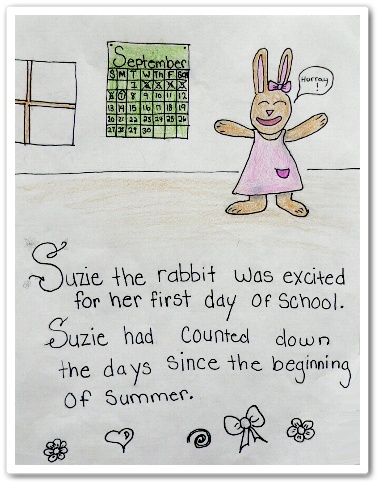 September
S M T W Th F Sat
1
7 8 9 10 11 12
13 14 15 16 17 18 19
20 21 22 23 24 25 26
27 28 29 30
Hurray!
Suzie the rabbit was excited
for her first day of school.
Suzie had counted down
the days since the beginning
of summer.